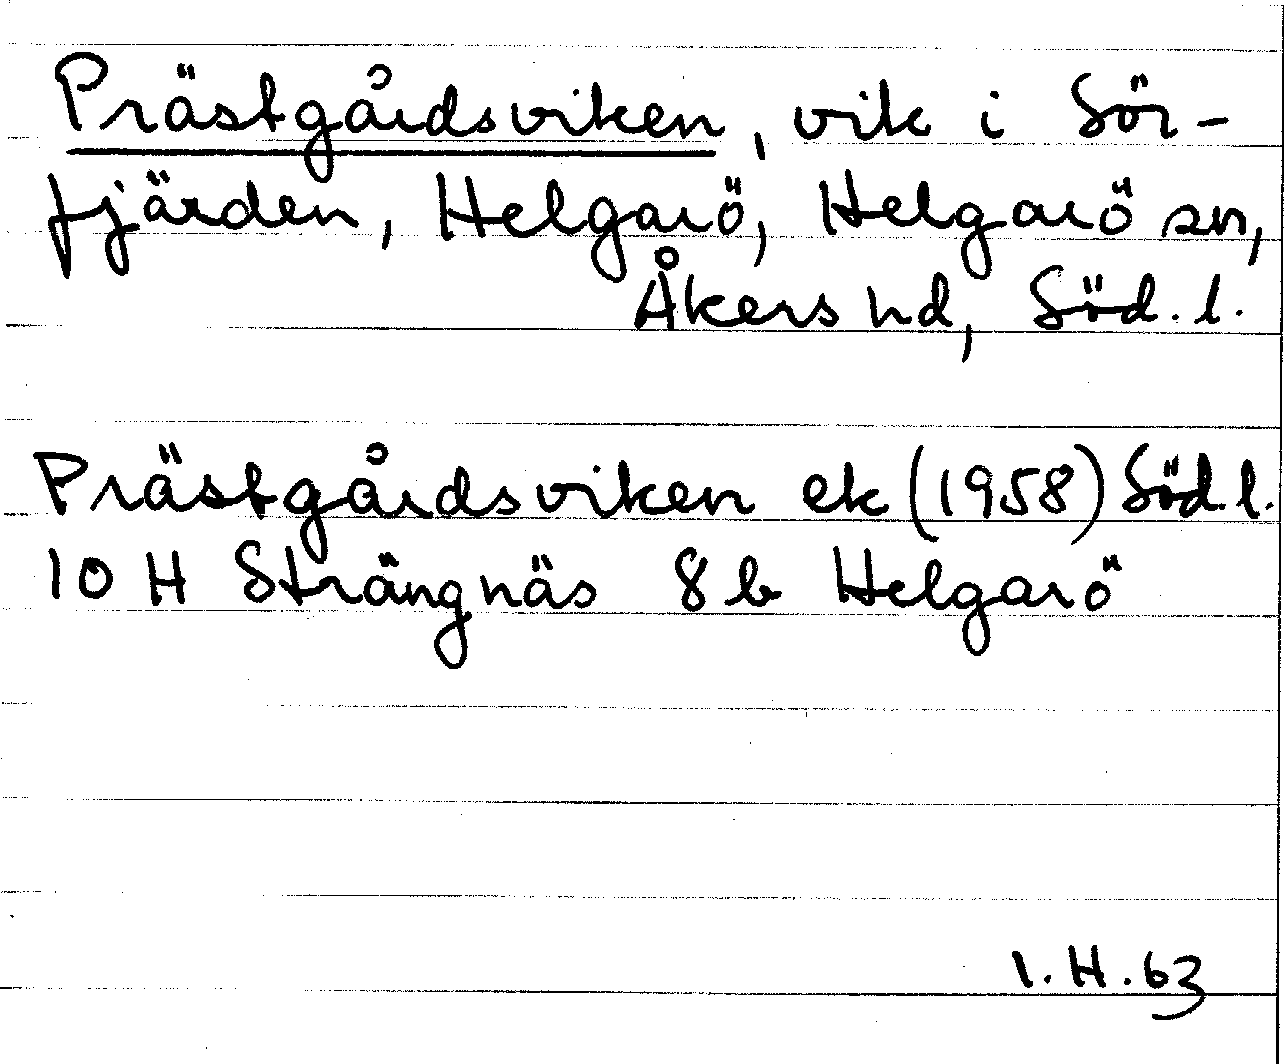 Prästgårdsviken, vik i Sör-
fjärden, Helgarö, Helgarö sn,
Åkers hd, Söd. l.
Prästgårdsviken ek (1958) Söd. l.
10 H Strängnäs 8 b Helgarö
I. H. 63